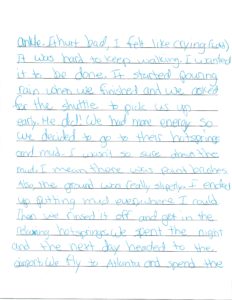 ankle. It hurt bad, I felt like crying
It was hard to keep walking. I wanted
it to be done. It started pouring
rain when we finished and we asked
for the shuttle to pick us up
early. He did! We had more energy so
we decided to go to their hotsprings
and mud. I wasn't so sure about the
mud. I mean there was paint brushes
Also, the ground was really slippery. I ended
up putting mud everywhere I could
Then we rinsed it off and got in the
relaxing hotsprings. We spent the night
and the next day headed to the
airport. We fly to Atlanta and spend the